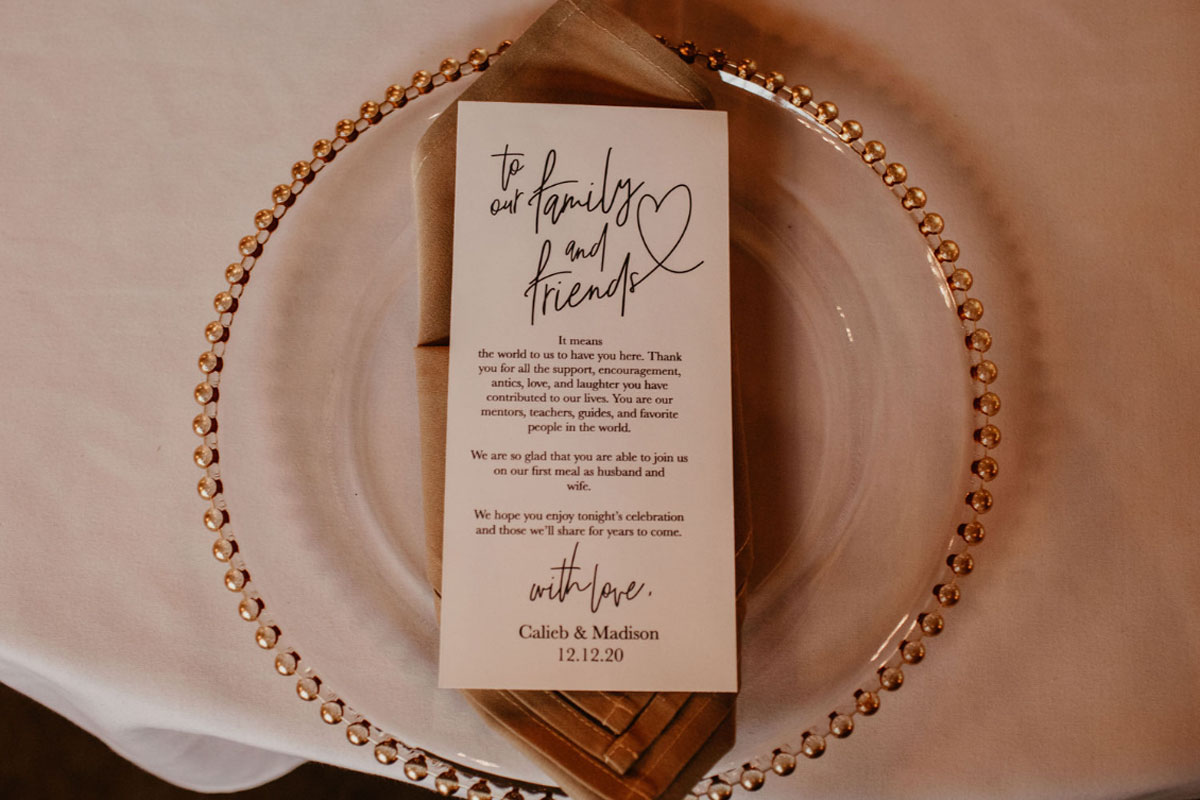 to
our family
and
friends
It means
the world to us to have you here. Thank
you for all the support, encouragement,
antics, love, and laughter you have
contributed to our lives. You are our
mentors, teachers, guides, and favorite
people in the world.
We are so glad that you are able to join us
on our first meal as husband and
wife.
We hope you enjoy tonight's celebration
and those we'll share for years to come.
with love,
Calieb & Madison
12.12.20